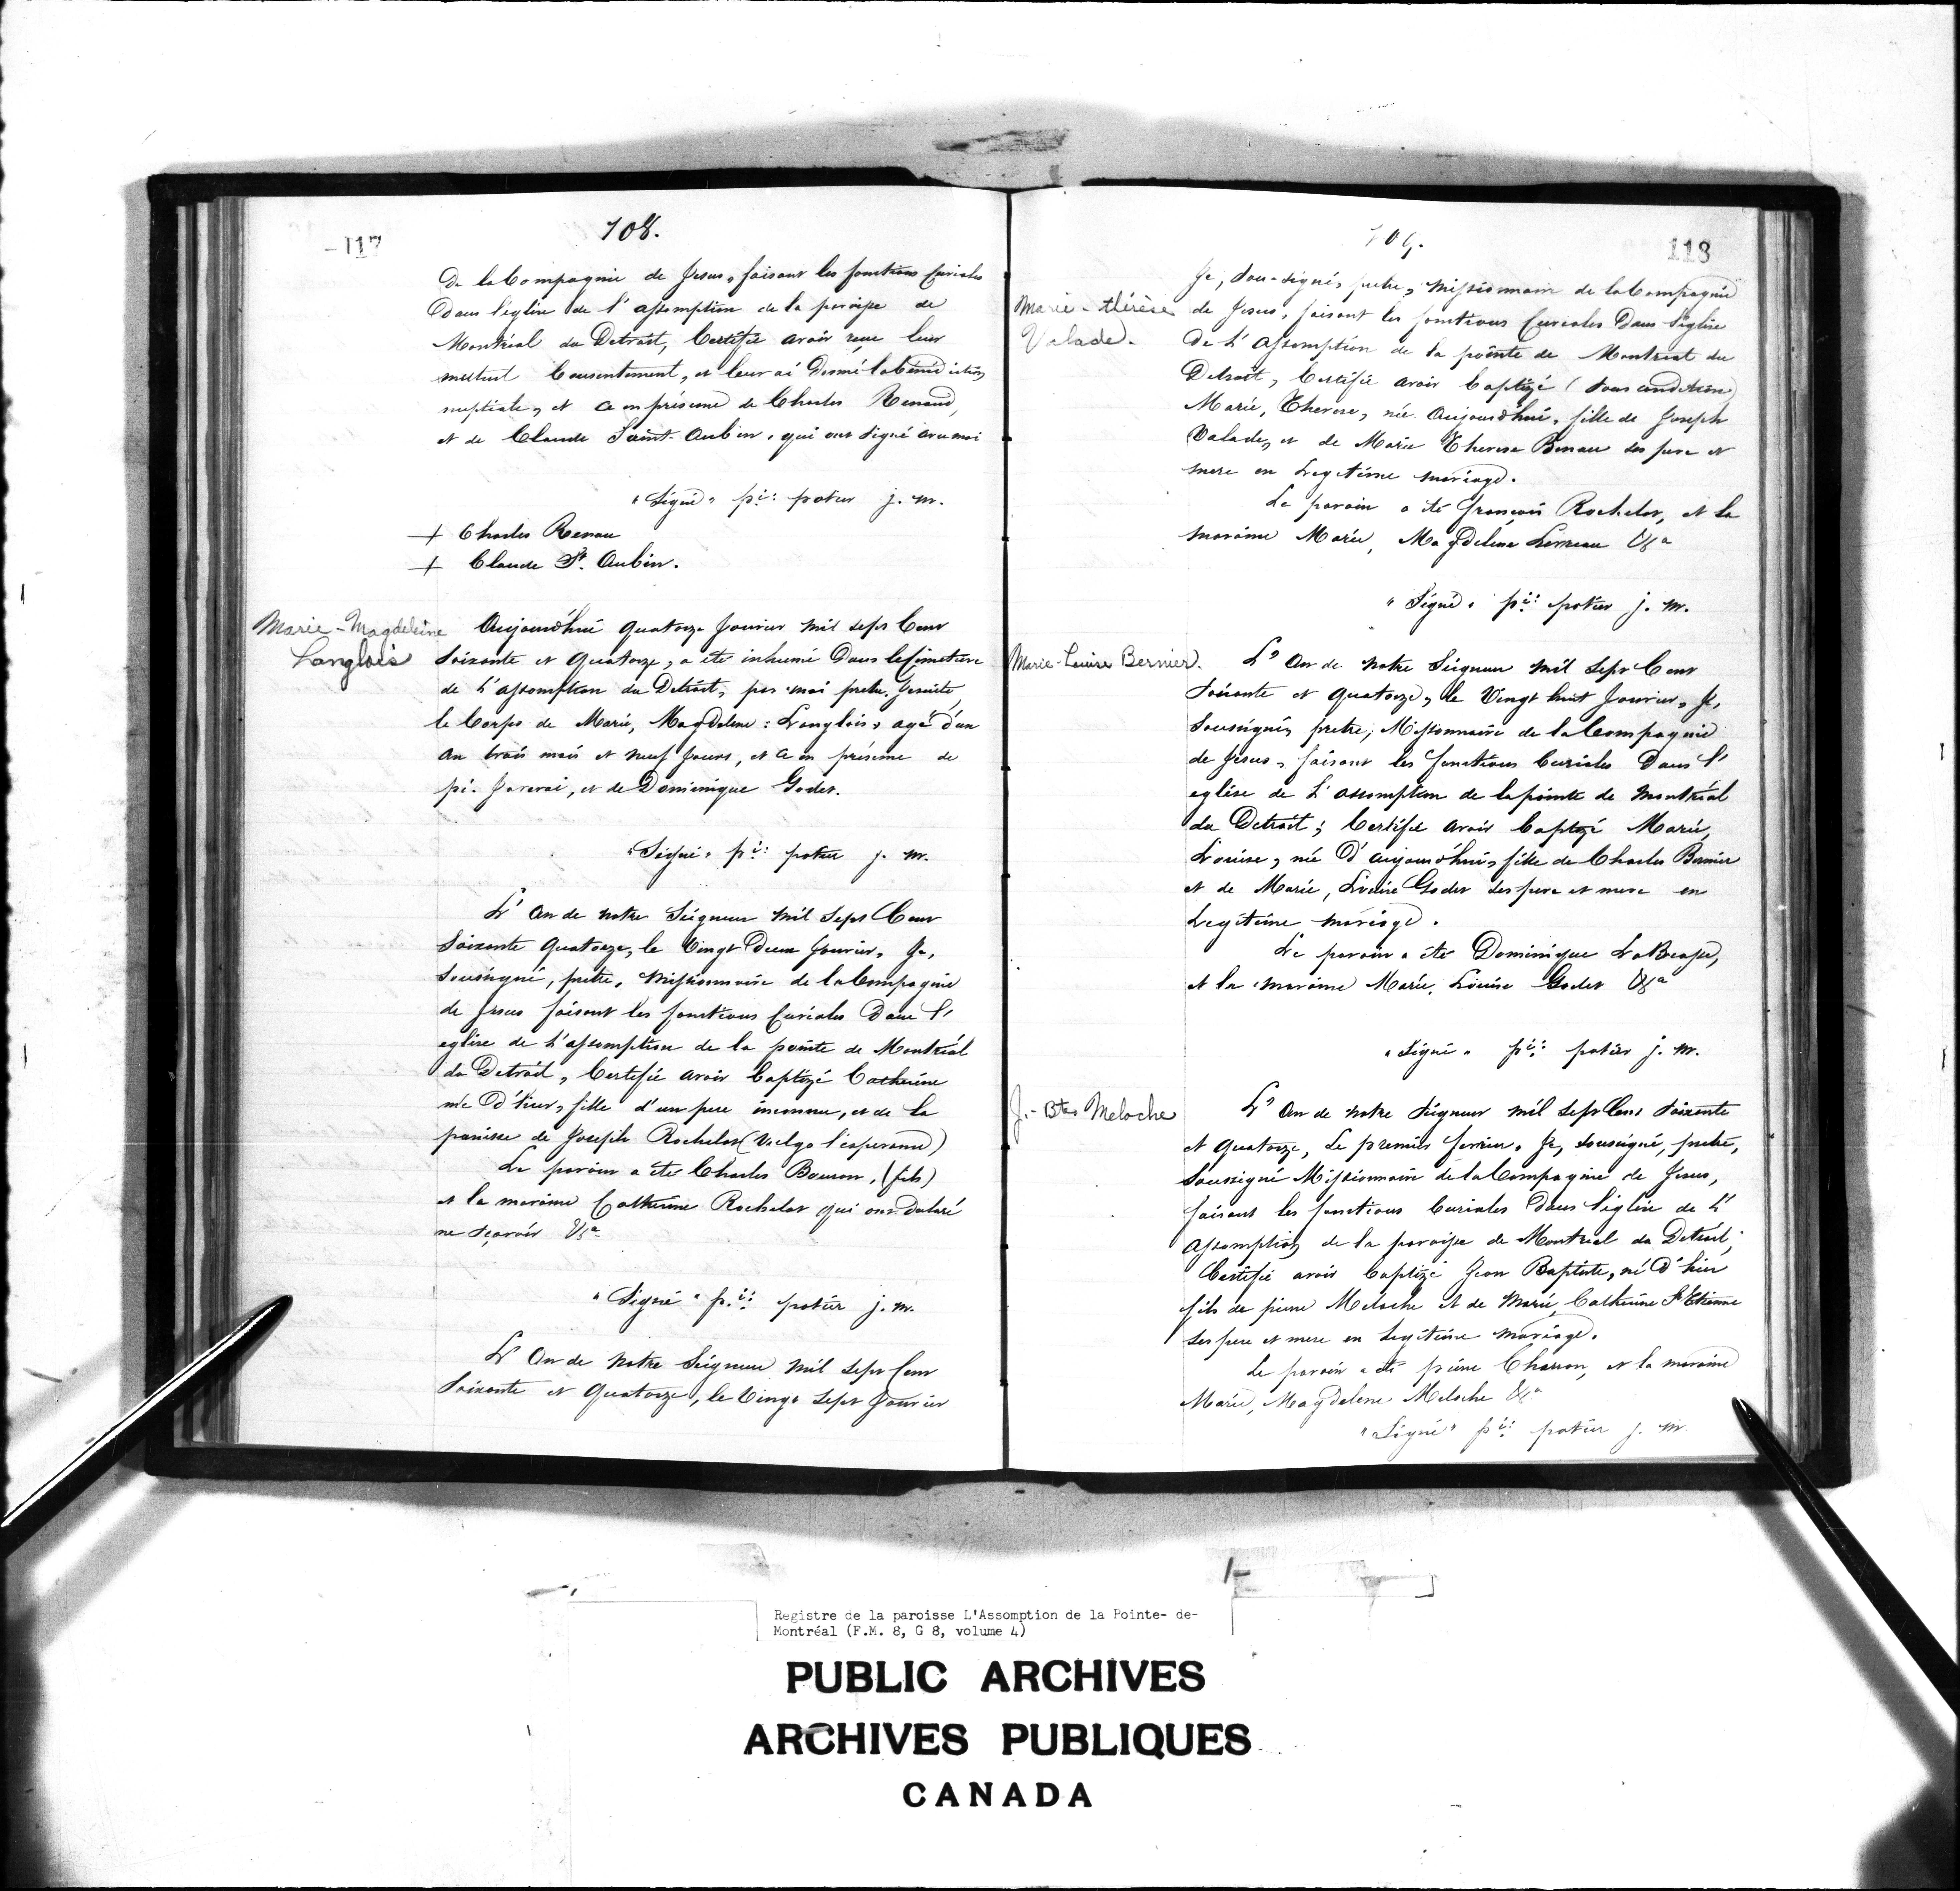 -117
108.
De la Compagnie de Jesus, faisant les fonctions Curiales
Dans l'eglise de l'assomption de la paroisse de
Montréal du Detroit, Certifie avoir reçu leur
mutuel Consentement, et leur ai Donné la bénédiction
nuptiale, et ce en présence de Charles Renaud,
et de Claude Saint-Aubin, qui ont signé avec moi
"Signé" pi: potier j. m.
+ Charles Renau
+ Claude St. Aubin.
Marie-Magdeleine
Langlois
Aujourd'hui quatorze Janvier mil sept Cent
Soixante et quatorze, a été inhumé Dans le Cimetiere
de L'assomption du Detroit, par moi pretre Jesuite
le Corps de Marie, Magdelene: Langlois, agé d'un
an trois mois et neuf Jours, et ce en présence de
pi. , et de Dominique Godet.
"Signé" pi: potier j. m.
L'An de notre Seigneur Mil Sept Cent
Soixante Quatorze, le Vingt Deux Janvier, Je,
Soussigné, pretre, Missionnaire de la Compagnie
de Jesus faisant les fonctions Curiales Dans l'
eglise de L'assomption de la pointe de Montréal
du Detroit, Certifie avoir baptizé Catherine
née D'hier, fille d'un pere inconnu, et de la
panisse de Joseph Rochelot (Vulgo l'esperance)
Le parain a été Charles Bouron, (fils)
et la maraine Catherine Rochelot qui ont Declaré
ne sçavoir &a
"Signé" p.i: potier j. m.
L'An de Notre Seigneur mil sept Cent
Soixante et Quatorze, le Vingt Sept Janvier
109.
118
Marie-thérèse
Valade.
Je, Sou-signé, pretre, Missionnaire de la Compagnie
de Jesus, faisant les fonctions Curiales Dans l'église
De L'Assomption de la pointe de Montreal du
Detroit, Certifie avoir baptizé (sous condition)
Marie, Therese, née Aujourd'hui, fille de Joseph
Valade, et de Marie Therese Benau ses pere et
mere en Legitime mariage.
Le parain a été françois Rochelot, et la
maraine Marie, Magdelene &a
"Signé" pi: potier j. m.
Marie-Louise Bernier.
L'An de notre Seigneur Mil Sept Cent
Soixante et Quatorze, le Vingt huit Janvier, Je,
Soussigné, pretre, Missionnaire de la Compagnie
de Jesus, faisant les fonctions Curiales Dans l'
eglise de L'assomption de la pointe de Montréal
du Detroit; Certifie avoir baptizé Marie,
Louise, née D'aujourd'hui, fille de Charles Bernier
et de Marie, Louise Godet ses pere et mere en
Legitime mariage.
Le parain a été Dominique LaBrosse,
et la maraine Marie, Louise Godet &a
"Signé" pi: potier j. m.
J.-Bte Meloche
L'An de notre Seigneur Mil Sept Cent Soixante
et Quatorze, Le premier fevrier, Je, soussigné, pretre,
Soussigné Missionnaire de la Compagnie de Jesus,
faisant les fonctions Curiales Dans l'église de L'
Assomption de la paroisse de Montreal du Detroit;
Certifie avoir baptizé Jean Baptiste, né D'hier
fils de pierre Meloche et de Marie, Catherine St Etienne
ses pere et mere en Legitime mariage.
Le parain a été pierre Charon, et la maraine
Marie, Magdelene Meloche &a
"Signé" pi: potier j. m.
Registre de la paroisse L'Assomption de la Pointe- de-
Montréal (F.M. 8, G 8, volume 4)
PUBLIC ARCHIVES
ARCHIVES PUBLIQUES
CANADA